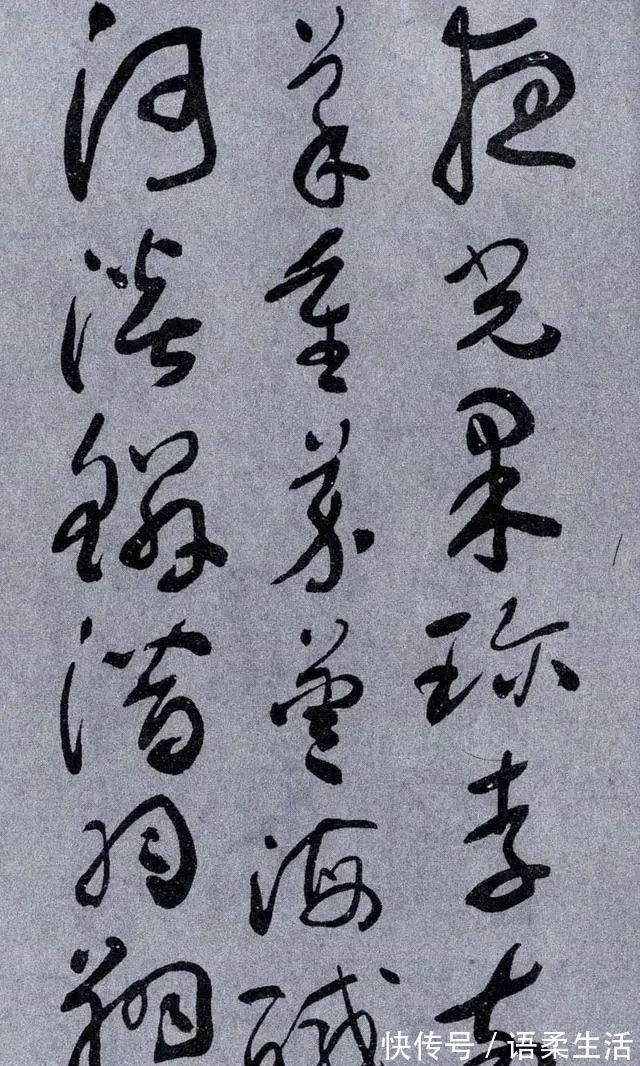 夜光果珍李柰
菜重芥薑海醎
河淡鱗潛羽翔
快传号/语柔生活